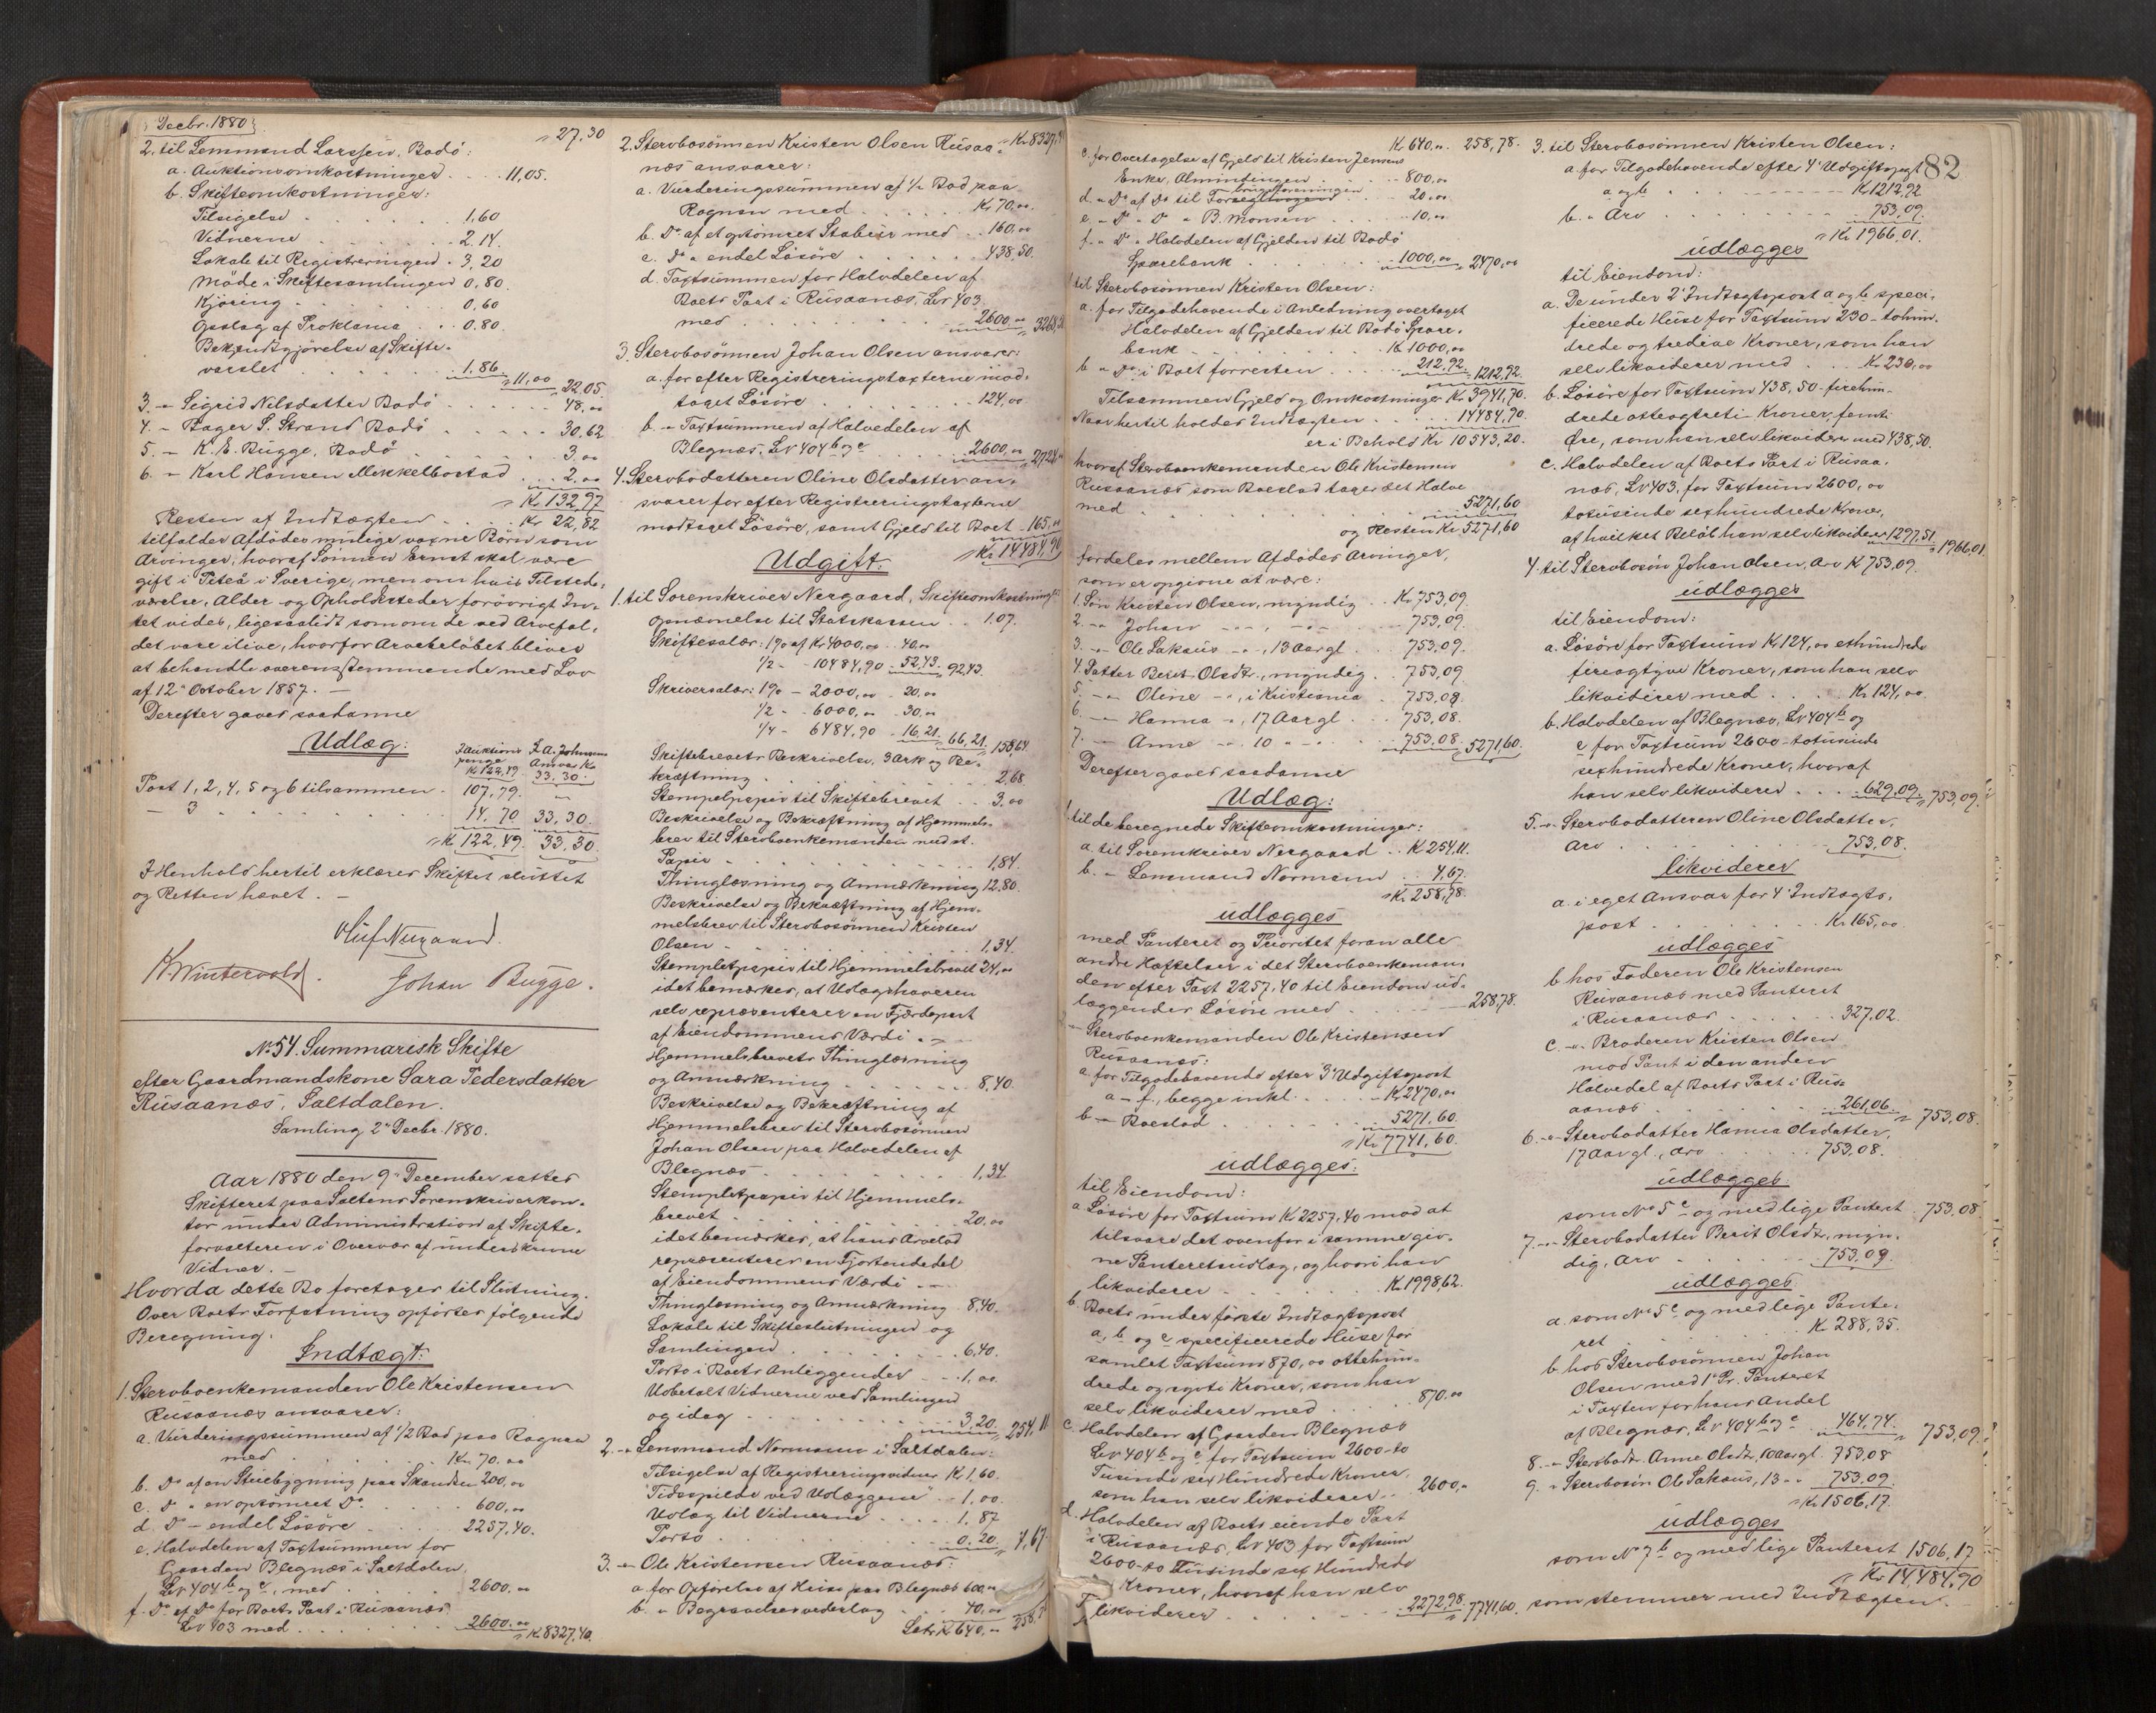 Decbr. 1880.
" 27.30
2. til Lensmand Larssen, Bodö:
a. Auktionsomkostninger . . . . 11,05.
b. Skifteomkostninger:
Tilsigelse . . . . . . 1,60
Vidnerne . . . . . 2.14.
Lokale til Registreringen . 3,20
Möde i Skiftesamlingen 0,80.
Kjöring . . . . . . 0,60
Opslag af Proklama . . 0.80.
Bekjendtgjörelse af Skifte-
varslet . . . . . . 1.86 " 11,00 22,05.
3. - Sigrid Nilsdatter Bodö . . . . . 48,00
4. - Bager S. Strand Bodö . . . . . 30,62
5. - K. E. Bugge, Bodö . . . . . 3,00
6. - Karl Hansen Mekkelbostad . . . 2,00
" Kr. 132,97
Resten af Indtægten . . . . Kr 22,82
tilfalder Afdödes mulige voxne Börn som
Arvinger, hvoraf Sönnen Ernst skal være
gift i Piteå i Sverige, men om hvis Tilstede-
værelse, Alder og Opholdssteder forövrigt In-
tet vides, ligesaalidt som om de ved Arvefal-
det vare ilive, hvorfor Arvebelöbet bliver
at behandle overensstemmende med Lov
af 12te October 1857. —
Derefter gaves saadanne
Udlæg:
I Auktions- penge Kr 122,49 | L. A. Johnsens Ansvar Kr 33.30.
Post 1, 2, 4, 5 og 6 tilsammen . 107,79. "
— 3 . . . . . . . . 14,70 33,30.
" Kr 122,49. 33,30.
I Henhold hertil erklæres Skiftet sluttet
og Retten hævet. —
Oluf Nergaard.
K. Wintervold. Johan Bugge.
No 54. Summarisk Skifte
efter Gaardmandskone Sara Pedersdatter
Rusaanæs, Saltdalen.
Samling 2den Decbr. 1880.
Aar 1880 den 9de December sattes
Skifteret paa Saltens Sorenskriverkon-
tor under Administration af Skifte-
forvalteren i Overvær af underskrevne
Vidner. —
Hvorda dette Bo foretages til Slutning.
Over Boets Forfatning opförtes fölgende
Beregning:
Indtægt:
1. Stervboenkemanden Ole Kristensen
Rusaanæs ansvarer:
a. Vurderingssummen af 1/2 Bod paa Rognan
med . . . . . . . . Kr. 70,00
b. Do af en Stuebygning paa Skandsen 200,00
c. Do " en optömret Do . . . . 600,00
d. Do - endel Lösöre . . . . 2257,40.
e. Halvdelen af Taxtsummen for
Gaarden Blegnæs i Saltdalen,
Lv 404 b og c, med . . . . 2600,00
f. Do af Do for Boets Part i Rusaanæs
Lv 403 med . . . . . . . 2600.00 " Kr 8327,40.
2. Stervbosönnen Kristen Olsen Rusaa- " Kr 8327,40
næs ansvarer:
a. Vurderingssummen af 1/2 Bod paa
Rognan med . . . . . Kr 70,00.
b. Do af et optömret Stabur med . . 160,00
c. Do " endel Lösöre . . . . . 438,50.
d. Taxtsummen for Halvdelen af
Boets Part i Rusaanæs, Lv 403.
med . . . . . . . . 2600,00 " 3268,50
3. Stervbosönnen Johan Olsen ansvarer:
a. for efter Registreringstaxterne mod-
taget Lösöre . . . . . . 124,00
b. - Taxtsummen af Halvedelen af
Blegnæs, Lv 404 b og c . . . 2600,00 " 2724,00
4. Stervbodatteren Oline Olsdatter an-
svarer for efter Registreringstaxterne
modtaget Lösöre, samt Gjeld til Boet . 165,00
" Kr 14484,90
Udgift:
1. til Sorenskriver Nergaard, Skifteomkostninger:
opnævnelse til Statskassen . . 1.07.
Skiftesalær: 1% af Kr 4000,00 . 40,00
1/2 - - 10484,90 . 52,43. 92,43
Skriversalær: 1% - 2000,00 . 20,00
1/2 - - 6000,00 . 30,00
1/4 - 6484,90 . 16,21. 66,21. 158,64.
Skiftebrevets Beskrivelse, 3 Ark og Be-
kræftning . . . . . . . . 2,68
Stempelpapir til Skiftebrevet . . 3,00
Beskrivelse og Bekræftning af Hjemmels-
brev til Stervboenkemanden med st.
Papir . . . . . . . . 1,84.
Thinglæsning og Anmærkning 12,80.
Beskrivelse og Bekræftning af Hjem-
melsbrev til Stervbosönnen Kristen
Olsen . . . . . . . . 1,34.
Stemplet papir til Hjemmelsbrevet 24,00
idet bemærkes, at Udlægshaveren
selv repræsenterer en Fjerdepart
af Eiendommens Værdi. —
Hjemmelsbrevets Thinglæsning
og Anmærkning . . . . . . 8,40.
Beskrivelse og Bekræftning af
Hjemmelsbrev til Stervbosönnen
Johan Olsen paa Halvedelen af
Blegnæs . . . . . . . 1,34
Stemplet papir til Hjemmels-
brevet . . . . . . . . 20,00
idet bemærkes, at hans Arvelod
repræsenterer en Fjortendedel
af Eiendommens Værdi —
Thinglæsning og Anmærkning . 8,40.
Lokale til Skifteslutningen og
Samlingen . . . . . . . 6,40.
Porto i Boets Anliggender . . 1,00.
Udbetalt Vidnerne ved Samlingen
og idag . . . . . . . . 3,20. 254,11
2. - Lensmand Normann i Saltdalen:
Tilsigelse af Registreringsvidner Kr 1,60.
"Tidsspilde ved Udlæggene" . 1,00.
Udlæg til Vidnerne . . . . 1,87
Porto . . . . . . . . 0,20. 4,67.
3. - Ole Kristensen Rusaanæs:
a. for Opförelse af Huse paa Blegnæs 600,00
b. " Begravelsesvederlag . . . 40,00
Latr. Kr 640,00 258,78
Kr 640,00. 258,78.
c. for Overtagelse af Gjeld til Kristen Jensens
Enke, Almindingen . . . . 800,00
d. " Do af Do til Forbrugsforeningen . 20,00
e. - Do - Do " B. Monsen . . . 10,00
f. - Do " Halvdelen af Gjelden til Bodö
Sparebank . . . . . . 1000,00 " 2470,00
til Stervbosönnen Kristen Olsen:
a. for Tilgodehavende i Anledning overtaget
Halvdelen af Gjelden til Bodö Spare-
bank . . . . . . . Kr 1000,00
b " Do i Boet forresten . . . . 212,92. " 1212,92.
Tilsammen Gjeld og Omkostninger Kr 3941,70.
Naar hertil holdes Indtægten . . . 14484,90.
er i Behold Kr 10543,20.
hvoraf Stervboenkemanden Ole Kristensen
Rusaanæs, som Boeslod tager det Halve
med . . . . . . . . . 5271,60
og Resten Kr 5271,60
fordeles mellem Afdödes Arvinger,
som er opgivne at være:
1. Sön Kristen Olsen, myndig . . Kr 753,09.
2. -"- Johan -"- , -"- . . . 753,09.
3. -"- Ole Sakæus -"- , 13 Aar gl. . 753,09.
4. Datter Berit Olsdtr., myndig . . 753,09
5. -"- Oline -"-, i Kristiania . 753,08.
6. -"- Hanna -"-, 17 Aar gl. . . 753,08.
7. -"- Anne -"- 10 -"- . . . 753,08. " 5271,60.
Derefter gaves saadanne
Udlæg:
1. til de beregnede Skifteomkostninger:
a. til Sorenskriver Nergaard . . Kr 254,11.
b. - Lensmand Normann . . . 4,67.
" Kr 258,78.
udlægges
med Panteret og Prioritet foran alle
andre Hæftelser i det Stervboenkeman-
den efter Taxt 2257,40 til Eiendom ud-
læggendes Lösöre med . . . . 258,78.
2. - Stervboenkemanden Ole Kristensen
Rusaanæs:
a for Tilgodehavende efter 3die Udgiftspost
a - f, begge inkl. . . . . Kr 2470,00
b - Boeslod . . . . . . 5271,60.
" Kr 7741,60.
udlægges:
til Eiendom:
a Lösöre for Taxtsum Kr 2257,40 mod at
tilsvare det ovenfor i samme giv-
ne Panteretsudlæg, og hvori han
likviderer . . . . . . Kr 1998,62.
b. Boets under förste Indtægtspost
a, b og c specificerede Huse for
samlet Taxtsum 870,00 ottehun-
drede og sytti Kroner, som han
selv likviderer med . . . . 870,00
c. Halvdelen af Gaarden Blegnæs
Lv 404 b og c for Taxtsum 2600-to
Tusinde sex Hundrede Kroner,
som han selv likviderer . . 2600,00
d. Halvdelen af Boets eiende Part
i Rusaanæs, Lv 403 for Taxtsum
2600-to Tusinde sex Hundrede
Kroner, hvoraf han selv
likviderer . . . . . . 2272,98. " 7741,60.
82
3. til Stervbosönnen Kristen Olsen:
a. for Tilgodehavende efter 4de Udgiftspost
a og b . . . . . . . Kr 1212,92
b. " Arv . . . . . . . 753,09.
" Kr 1966,01.
udlægges
til Eiendom:
a. De under 2den Indtægtspost a og b speci-
ficerede Huse for Taxtsum 230 - tohun-
drede og tredive Kroner, som han
selv likviderer med . . . Kr 230,00
b. Lösöre for Taxtsum 438,50 - firehun-
drede otteogtreti - Kroner, femti
Öre, som han selv likviderer med 438,50.
c. Halvdelen af Boets Part i Rusaa-
næs, Lv 403, for Taxtsum 2600,00
totusinde sexhundrede Kroner,
af hvilket Belöb han selv likviderer 1297,51. " 1966,01.
4. til Stervbosön Johan Olsen, Arv Kr 753,09.
udlægges
til Eiendom:
a. Lösöre for Taxtsum Kr 124,00 ethundrede
fireogtyve Kroner, som han selv
likviderer med . . . . Kr 124,00.
b. Halvdelen af Blegnæs, Lv 404 b og
c for Taxtsum 2600 - totusinde
sexhundrede Kroner, hvoraf
han selv likviderer . . . . 629,09. " 753,09.
5. -"- Stervbodatteren Oline Olsdatter,
Arv . . . . . . . . 753,08.
likviderer
a. i eget Ansvar for 4de Indtægts-
post . . . . . . . Kr 165,00.
udlægges
b hos Faderen Ole Kristensen
Rusaanæs med Panteret
i Rusaanæs . . . . . . 327,02.
c. -"- Broderen Kristen Olsen
mod Pant i den anden
Halvedel af Boets Part i Rus-
aanæs . . . . . . . 261,06. " 753,08.
6. -"- Stervbodatter Hanna Olsdatter,
17 Aar gl., Arv . . . . 753,08.
udlægges
som No 5 c og med lige Panteret . 753,08.
7. -"- Stervbodatter Berit Olsdtr., myn-
dig, Arv . . . . . . 753,09.
udlægges
a. som No 5 c og med lige Pante-
ret . . . . . . . Kr 288,35.
b hos Stervbosönnen Johan
Olsen med 1ste Pr. Panteret
i Taxten for hans Andel
af Blegnæs, Lv 404 b og c . . 464,74. " 753,09.
8. -"- Stervbodtr. Anne Olsdtr. 10 Aar gl. 753,08
9. " Stervbosön Ole Sakæus, 13 -"- 753,09.
" Kr 1506,17.
udlægges
som No 7 b og med lige Panteret 1506,17
" Kr. 14,484,90
som stemmer med Indtægten. —